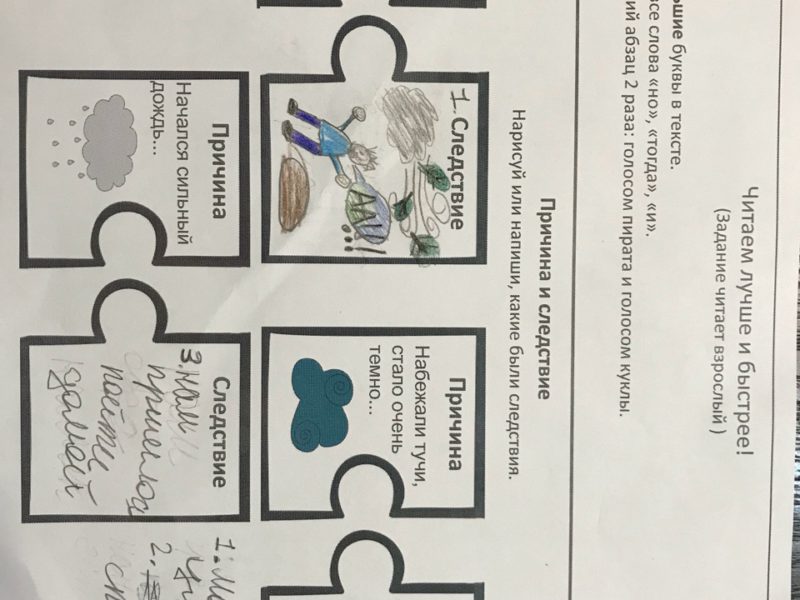 Читаем лучше и быстрее!
(Задание читает взрослый )
ьшие буквы в тексте.
все слова «но», «тогда», «и».
ий абзац 2 раза: голосом пирата и голосом куклы.
Причина и следствие
Нарисуй или напиши, какие были следствия.
1. Следствие
ААА!...
Причина
Набежали тучи,
стало очень
темно...
Причина
Начался сильный
дождь...
Следствие
3. нам
пришлось
пойти
домой
1. Мы
2.